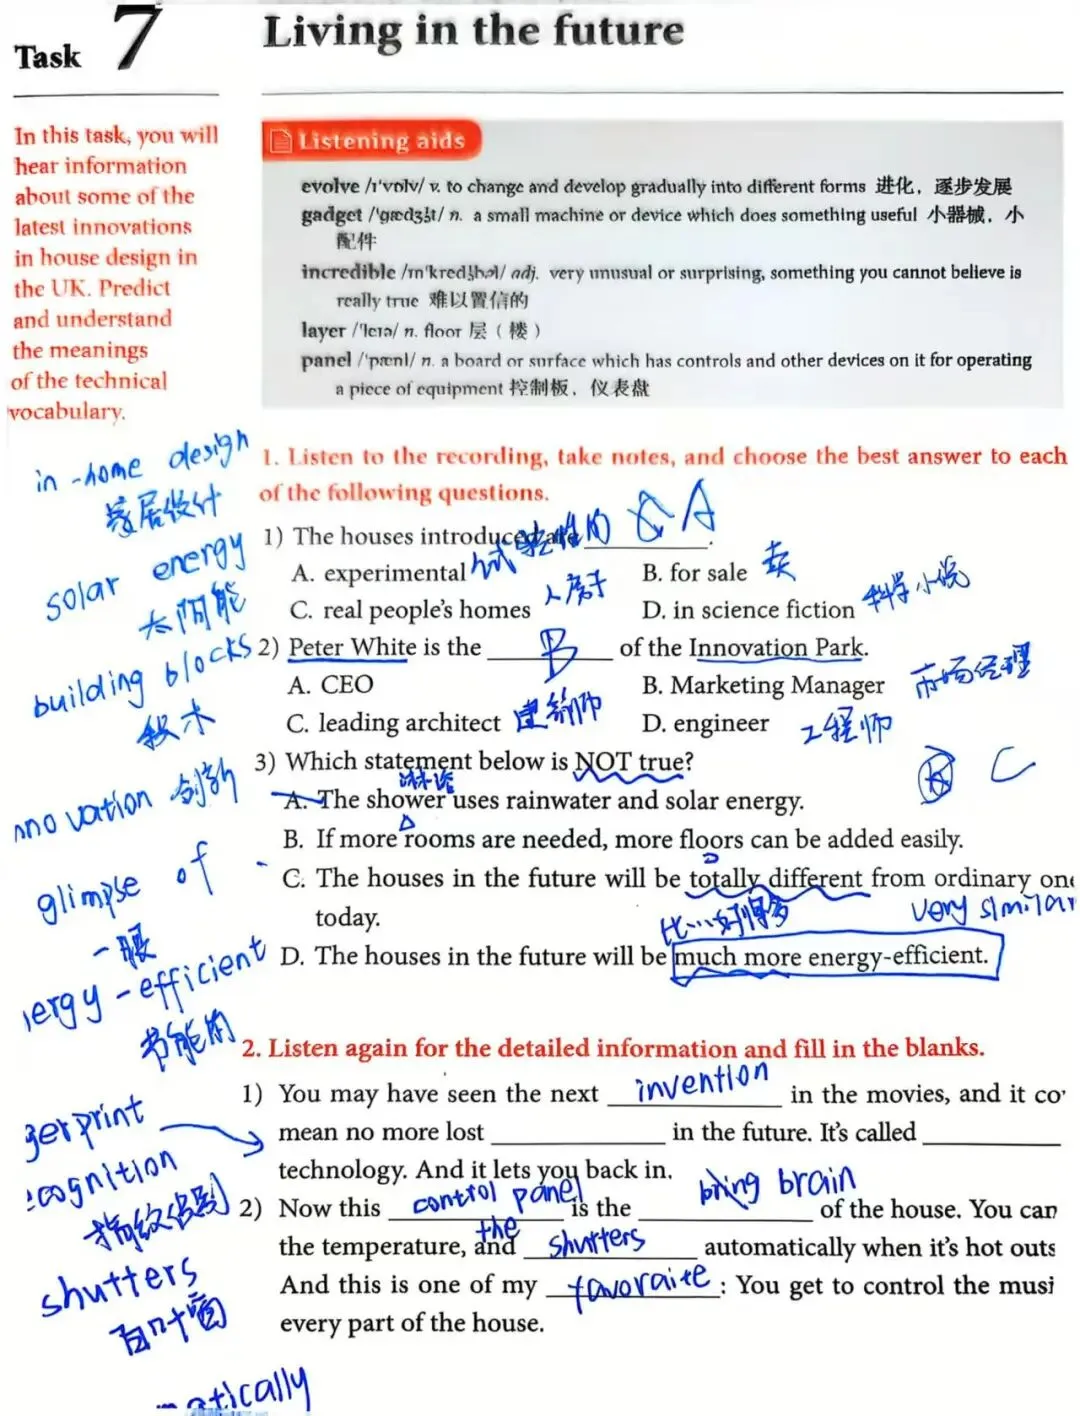 Task 7
Living in the future
In this task, you will
hear information
about some of the
latest innovations
in house design in
the UK. Predict
and understand
the meanings
of the technical
vocabulary.
Listening aids
evolve /ɪˈvɒlv/ v. to change and develop gradually into different forms 进化，逐步发展
gadget /ˈɡædʒɪt/ n. a small machine or device which does something useful 小器械，小
配件
incredible /ɪnˈkredɪbəl/ adj. very unusual or surprising, something you cannot believe is
really true 难以置信的
layer /ˈleɪə/ n. floor 层（楼）
panel /ˈpænl/ n. a board or surface which has controls and other devices on it for operating
a piece of equipment 控制板，仪表盘
in-home design
家居设计
solar energy
太阳能
building blocks
积木
nnovation 创新
glimpse of
一眼
ergy-efficient
节能的
gerprint
cognition
指纹识别
shutters
百叶窗
atically
1. Listen to the recording, take notes, and choose the best answer to each
of the following questions.
1) The houses introduced are ____. A
A. experimental 试验性的
B. for sale 卖
C. real people's homes 人房子
D. in science fiction 科学小说
2) Peter White is the B of the Innovation Park.
A. CEO
B. Marketing Manager 市场经理
C. leading architect 建筑师
D. engineer 工程师
3) Which statement below is NOT true? C
淋浴
A. The shower uses rainwater and solar energy.
B. If more rooms are needed, more floors can be added easily.
C. The houses in the future will be totally different from ordinary one
today.
比…好得多
very similar
D. The houses in the future will be much more energy-efficient.
2. Listen again for the detailed information and fill in the blanks.
1) You may have seen the next invention in the movies, and it co
mean no more lost ____ in the future. It's called ____
technology. And it lets you back in.
2) Now this control panel is the brain of the house. You can
the temperature, and the shutters automatically when it's hot outs
And this is one of my favoraite : You get to control the musi
every part of the house.